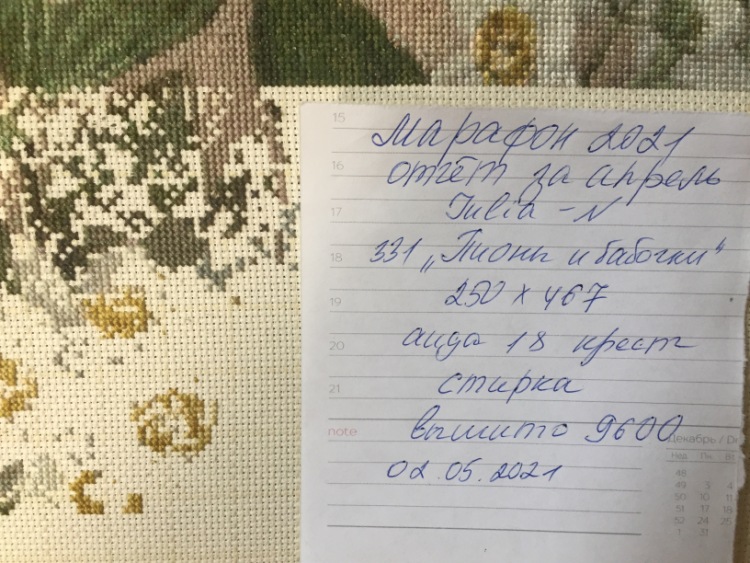 15
Марафон 2021
16
отчёт за апрель
17
Julia-N
18
331 „Пионы и бабочки"
19
250 х 467
20
аида 18 крест
21
стирка
note
вышито 9600
02.05.2021
Декабрь / De
Нед. Пн. Вт
48
49 3 4
50 10 11
51 17 18
52 24 25
1 31